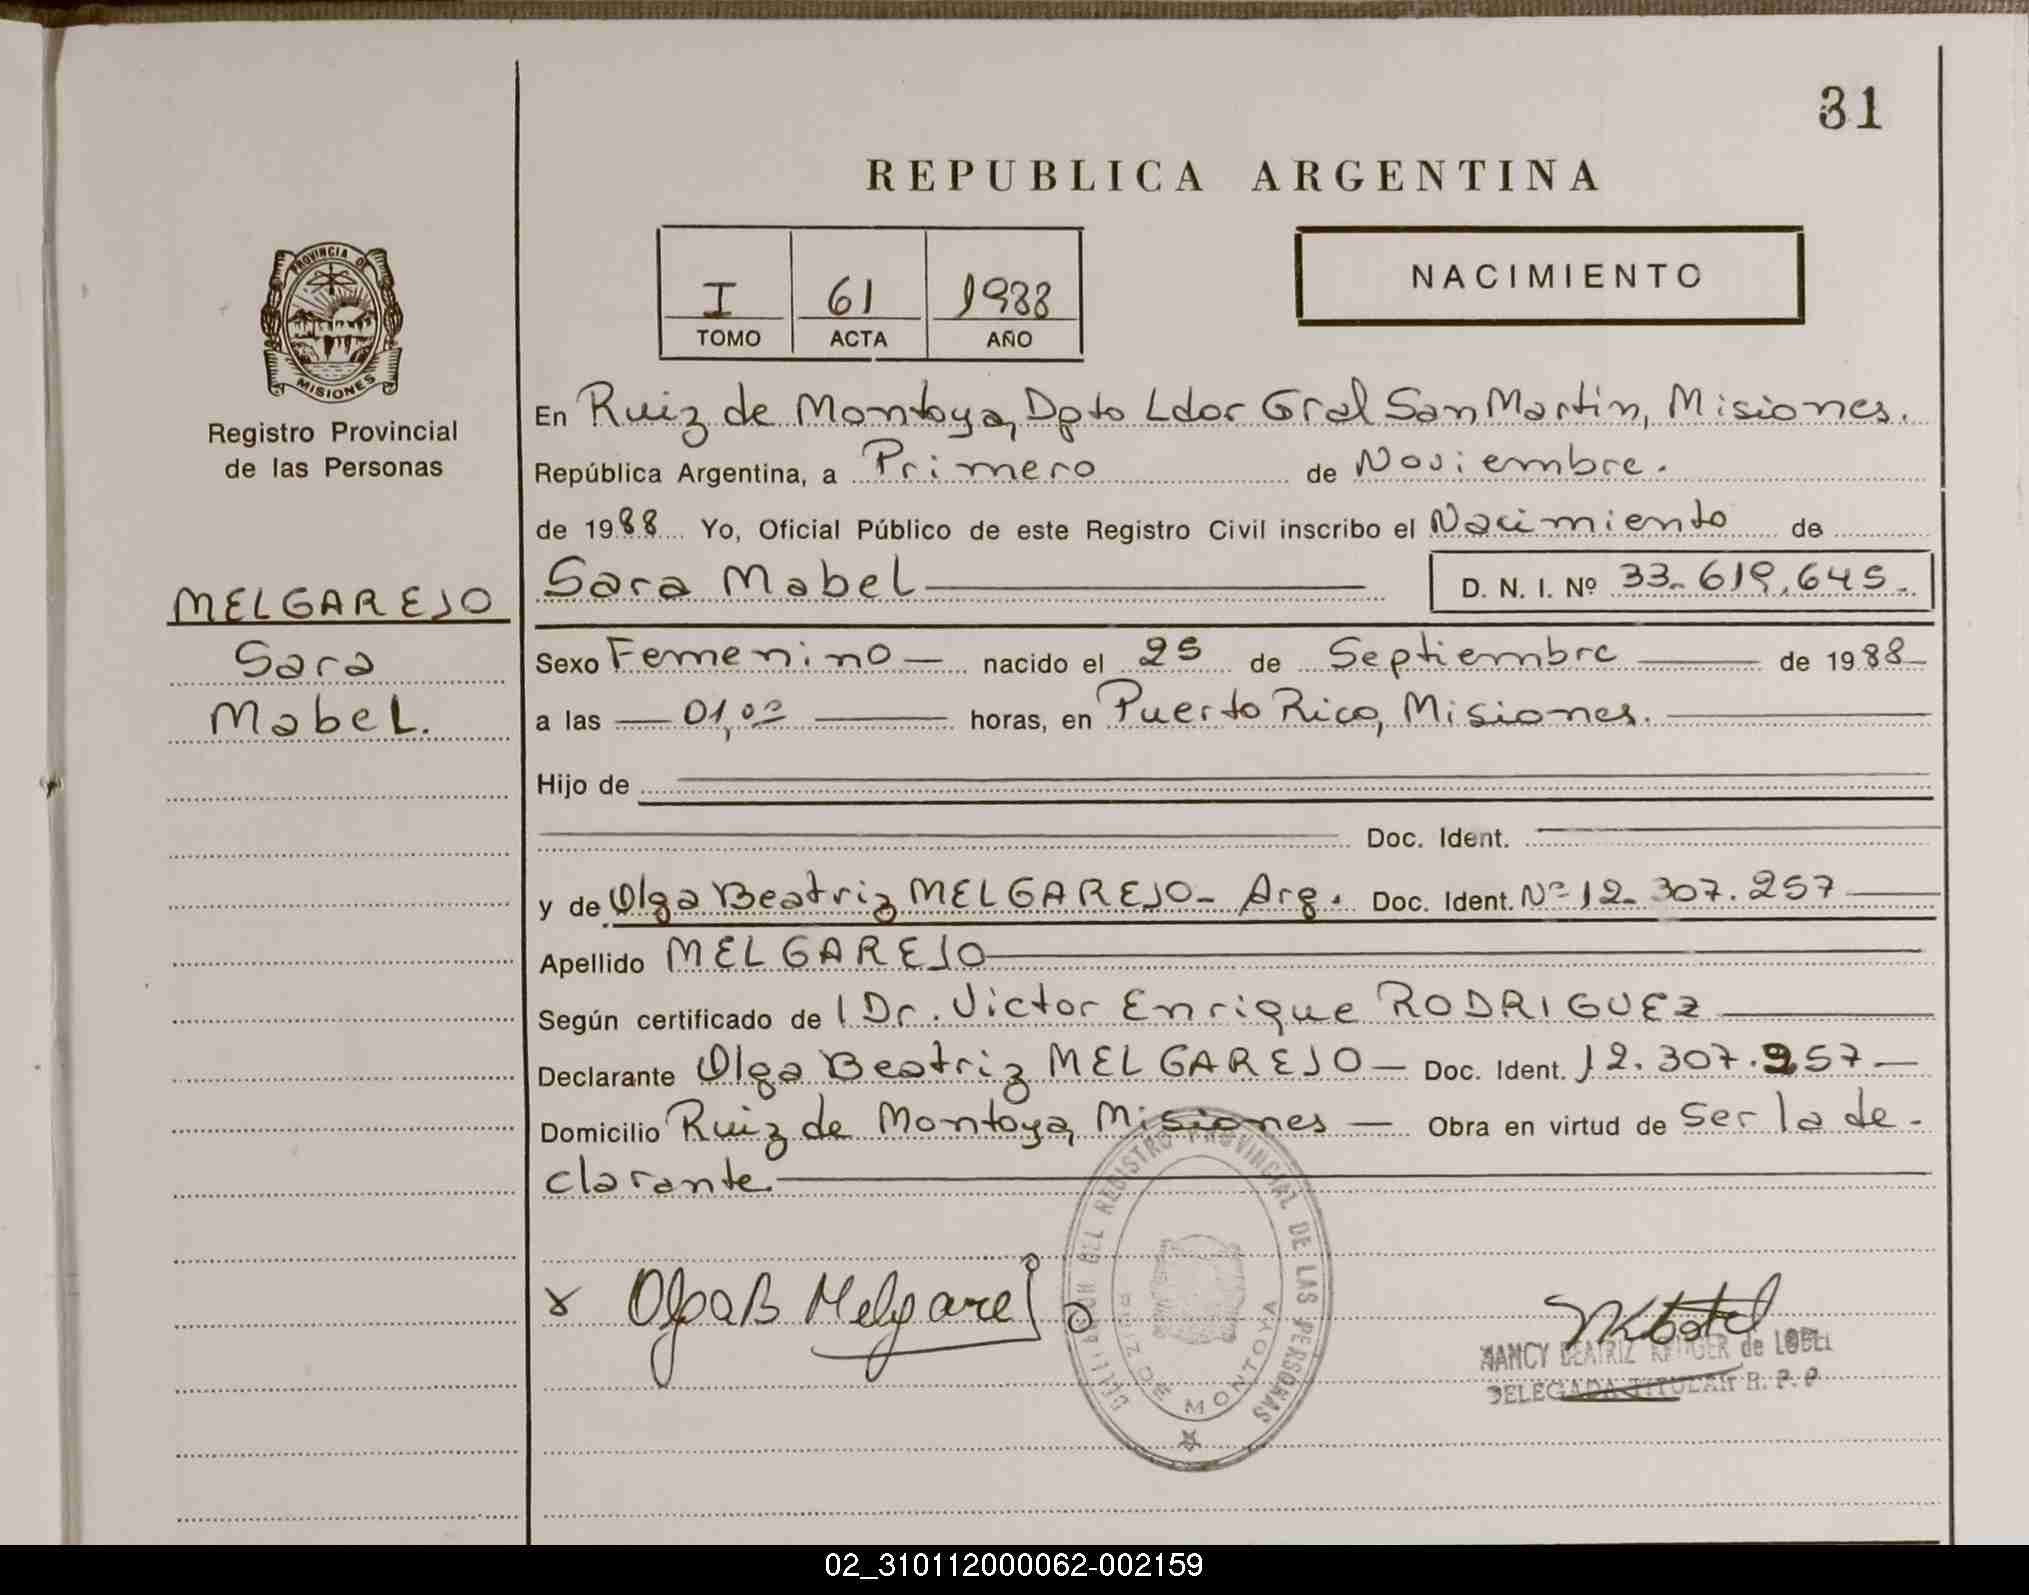 31
REPUBLICA ARGENTINA
PROVINCIA DE
MISIONES
Registro Provincial
de las Personas
I 61 1988
TOMO ACTA AÑO
NACIMIENTO
MELGAREJO
Sara
Mabel.
En Ruiz de Montoya, Dpto Ldor Gral San Martin, Misiones.
República Argentina, a Primero de Noviembre.
de 1988 Yo, Oficial Público de este Registro Civil inscribo el Nacimiento de
Sara Mabel D. N. I. Nº 33.619.645.-
Sexo Femenino — nacido el 25 de Septiembre — de 1988
a las — 01,00 — horas, en Puerto Rico, Misiones. —
Hijo de
Doc. Ident.
y de Olga Beatriz MELGAREJO- Arg. Doc. Ident. Nº 12.307.257
Apellido MELGAREJO
Según certificado de l Dr. Victor Enrique RODRIGUEZ
Declarante Olga Beatriz MELGAREJO — Doc. Ident. 12.307.257 —
Domicilio Ruiz de Montoya, Misiones — Obra en virtud de ser la de-
clarante.
DELEGACION DEL REGISTRO PROVINCIAL DE LAS PERSONAS
RUIZ DE MONTOYA
x Olga B Melgarejo
NANCY BEATRIZ KRUGER de LOBEL
DELEGADA TITULAR R. P. P
02_310112000062-002159